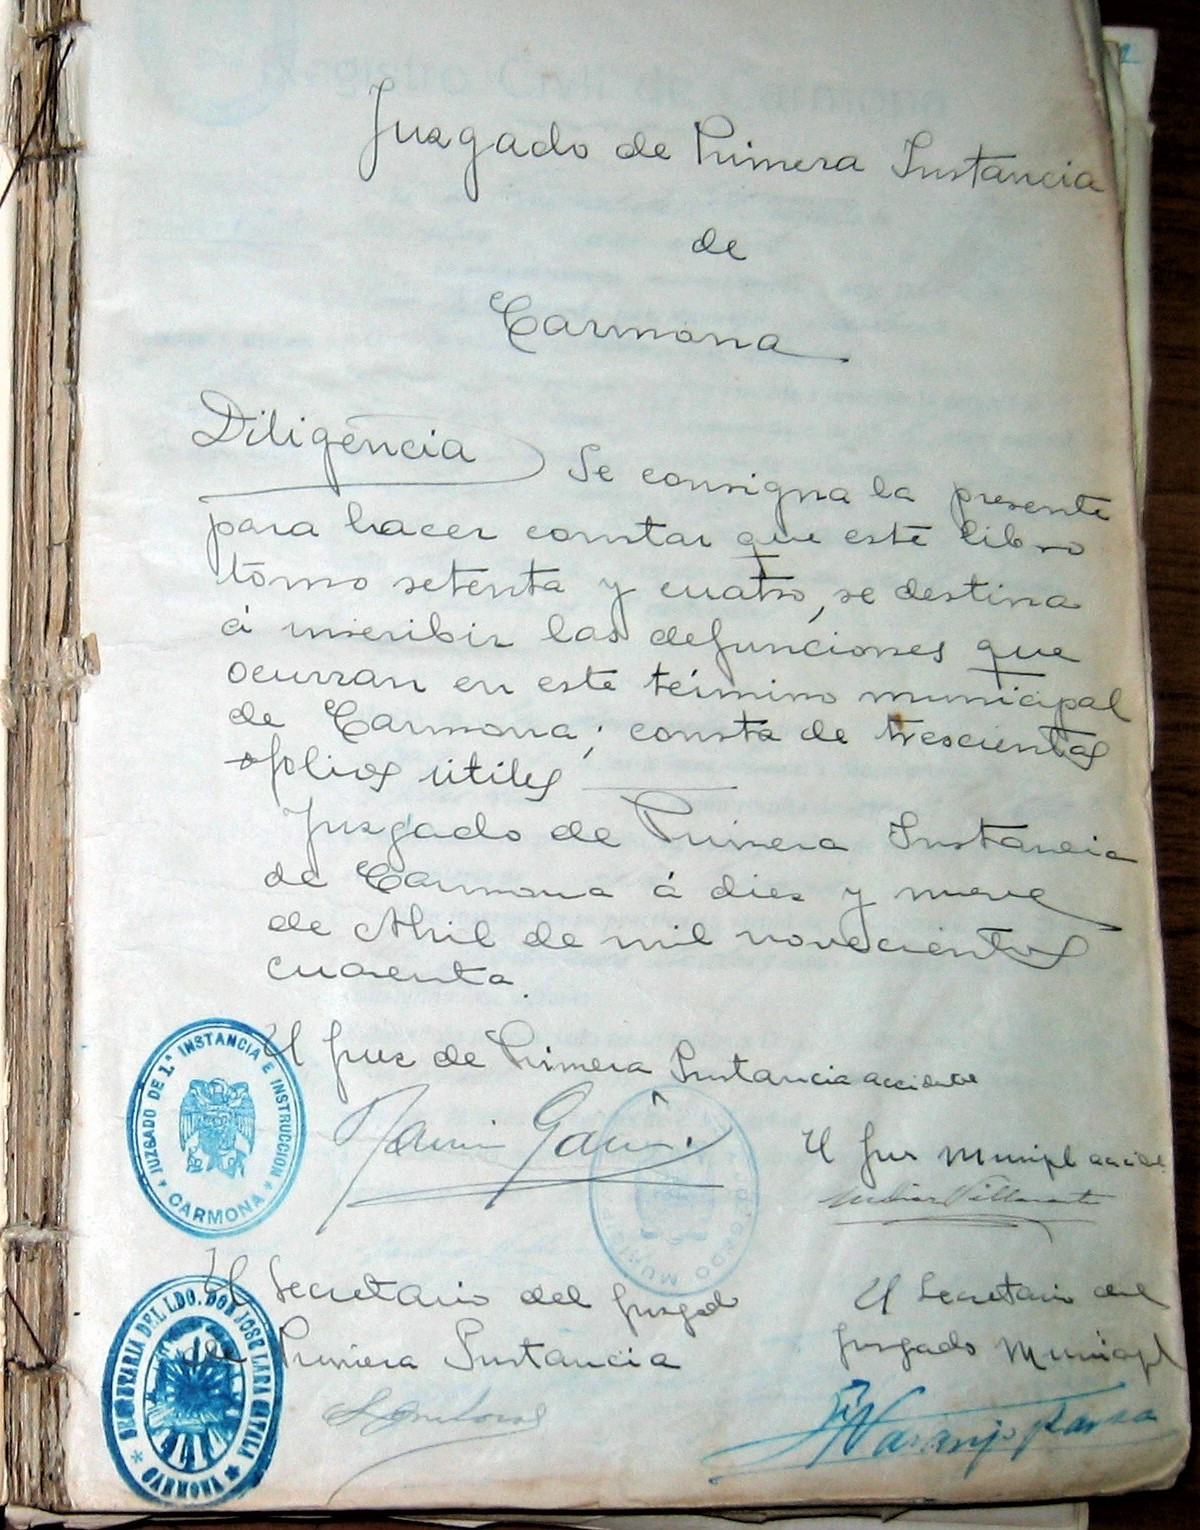 Juzgado de Primera Instancia
de
Carmona
Diligencia) Se consigna la presente
para hacer constar que este libro
tomo setenta y cuatro, se destina
á inscribir las defunciones que
ocurran en este término municipal
de Carmona; consta de trescientos
folios útiles
Juzgado de Primera Instancia
de Carmona á diez y nueve
de Abril de mil novecientos
cuarenta.
El Juez de Primera Instancia accidental
JUZGADO DE 1.ª INSTANCIA E INSTRUCCION
CARMONA
El Juez Municipl accidl
JUZGADO MUNICIP
El Secretario del Juzgado
de Primera Instancia
El Secretario del
Juzgado Municipl
SECRETARIA DEL LDO. DON JOSE LARA CATILA
CARMONA
Naranjo